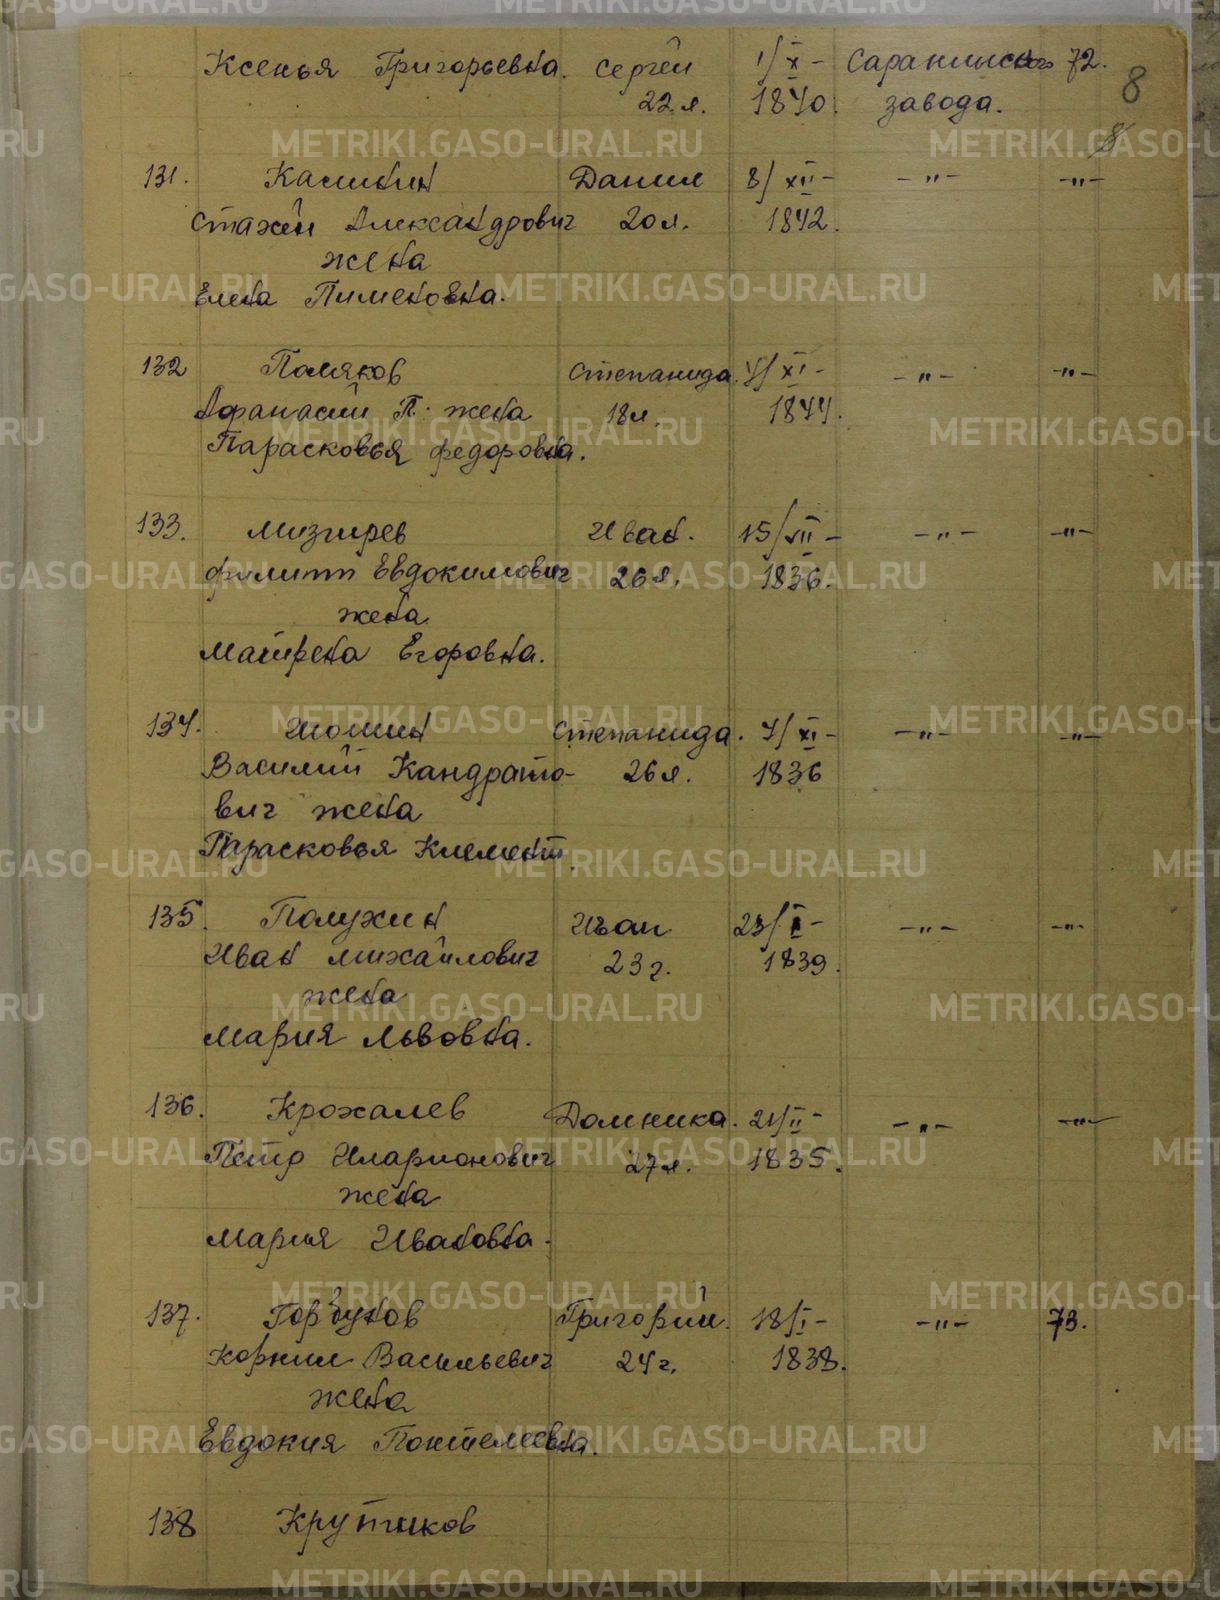 Ксенья Григорьевна. Сергей 1/X- Саранинского 72. 8
22 л. 1840. завода.
131. Касинин Данил 8/XII- -"- -"-
Стахей Александрович 20 л. 1842.
жена
Елена Пименовна.
132 Поляков Степанида. 4/XI- -"- -"-
Афанасий П. жена 18 л. 1844.
Парасковья Федоровна.
133. Мизгирев Иван. 15/VII- -"- -"-
Филипп Евдокимович 26 л. 1836.
жена
Матрена Егоровна.
134. Шошин Степанида. 4/XI- -"- -"-
Василий Кандрато- 26 л. 1836
вич жена
Парасковья Клемент.
135. Полухин Иван 23/I- -"- -"-
Иван Михайлович 23 г. 1839.
жена
Мария Львовна.
136. Крохалев Домника. 21/II- -"- -"-
Петр Иларионович 27 л. 1835.
жена
Мария Ивановна.
137. Горбунов Григорий. 18/I- -"- 73.
Корнил Васильевич 24 г. 1838.
жена
Евдокия Понтелеевна.
138 Крутиков
METRIKI.GASO-URAL.RU